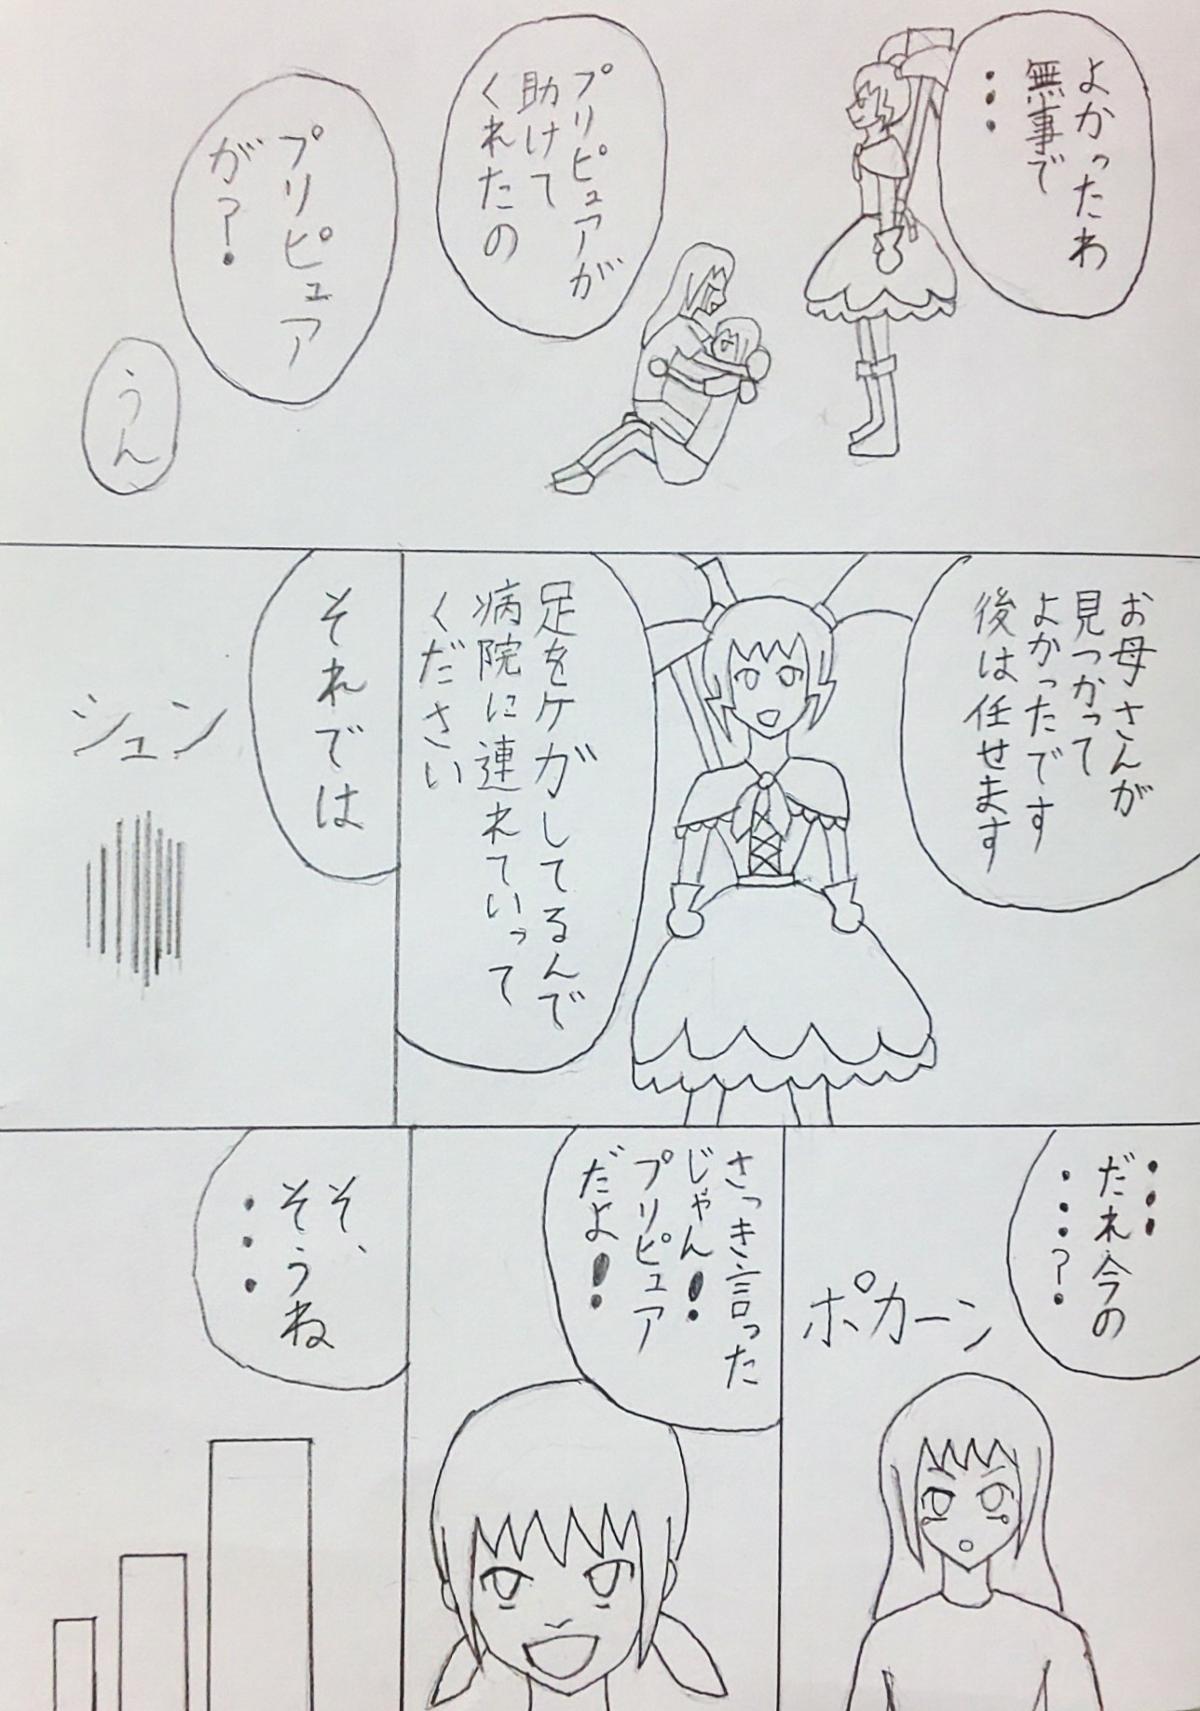 よかったわ
無事で
・・・
プリピュアが
助けて
くれたの
プリピュア
が?
うん
お母さんが
見つかって
よかったです
後は任せます
足をケガしてるんで
病院に連れていって
ください
それでは
シュン
・・・
だれ今の
・・・?
ポカーン
さっき言った
じゃん!
プリピュア
だよ!
そ、
そうね
・・・